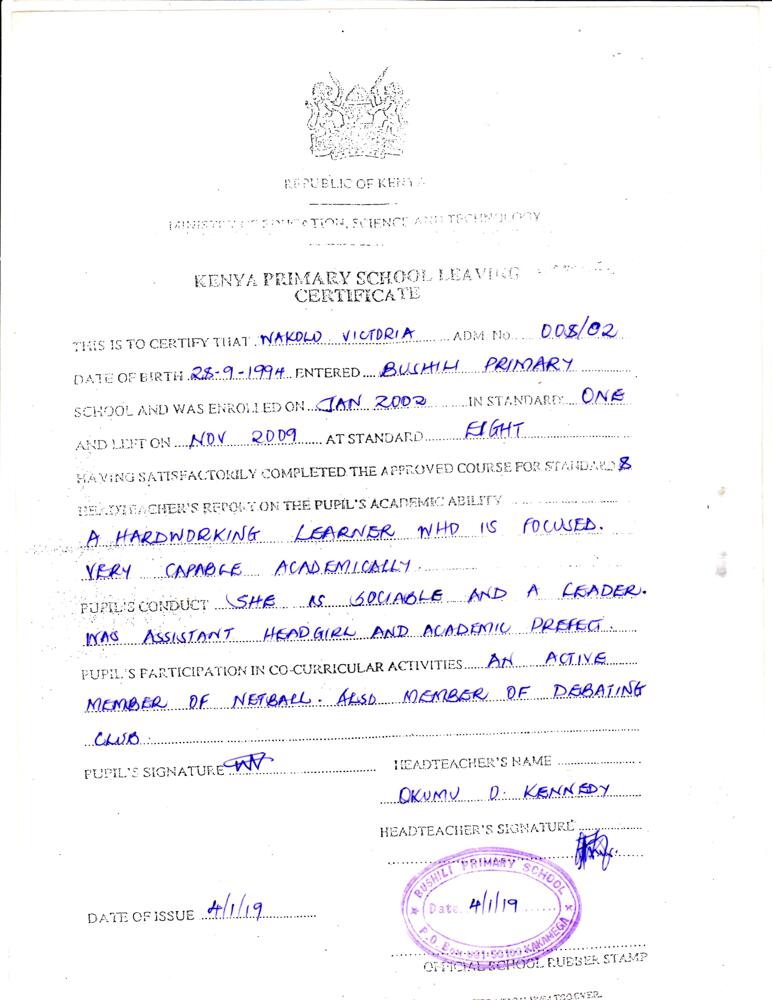 REPUBLIC OF KENYA
MINISTRY OF EDUCATION, SCIENCE AND TECHNOLOGY
KENYA PRIMARY SCHOOL LEAVING
CERTIFICATE
THIS IS TO CERTIFY THAT NAKOLO VICTORIA ADM. No. 008/02
DATE OF BIRTH 28-9-1994 ENTERED BUSHILI PRIMARY
SCHOOL AND WAS ENROLLED ON JAN 2002 IN STANDARD ONE
AND LEFT ON NOV 2009 AT STANDARD EIGHT
HAVING SATISFACTORILY COMPLETED THE APPROVED COURSE FOR STANDARD 8
HEADTEACHER'S REPORT ON THE PUPIL'S ACADEMIC ABILITY
A HARDWORKING LEARNER WHO IS FOCUSED.
VERY CAPABLE ACADEMICALLY.
PUPIL'S CONDUCT SHE IS SOCIABLE AND A LEADER.
WAS ASSISTANT HEADGIRL AND ACADEMIC PREFECT.
PUPIL'S PARTICIPATION IN CO-CURRICULAR ACTIVITIES AN ACTIVE
MEMBER OF NETBALL. ALSO MEMBER OF DEBATING
CLUB.
PUPIL'S SIGNATURE
HEADTEACHER'S NAME
OKUMU D. KENNEDY
HEADTEACHER'S SIGNATURE
BUSHILI PRIMARY SCHOOL
DATE OF ISSUE 4/1/19
Date 4/1/19
P.O. Box 50100 KAKAMEGA
OFFICIAL SCHOOL RUBBER STAMP